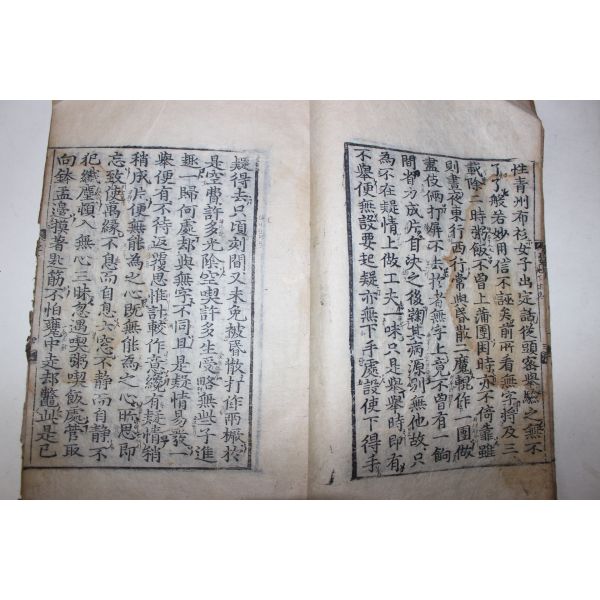 性青州布衫女子出定話從頭密擧驗之無不
了了般若妙用信不誣矣前所看無字將及三
載除一時粥飯不曾上蒲團困時亦不倚靠雖
則晝夜東行西行常與昏散二魔輥作一團做
盡伎倆打屛不去於者無字上竟不曾有一餉
間省力成片自決之後鞠其病源別無他故只
為不在疑情上做工夫一味只是擧擧時即有
不擧便無設要起疑亦無下手處設使下得手
疑得去只頃刻間又未免被昏散打作兩橛於
是空費許多光陰空喫許多生受略無些子進
趣一歸何處却與無字不同且是疑情易發一
擧便有不待返覆思惟計較作意纔有疑情稍
稍成片便無能為之心旣無能為之心所思即
忘致使萬緣不息而自息六窓不靜而自靜不
犯纖塵頓入無心三昧忽遇喫粥喫飯處管取
向鉢盂邊摸著匙筋不怕甕中走却鼈此是已